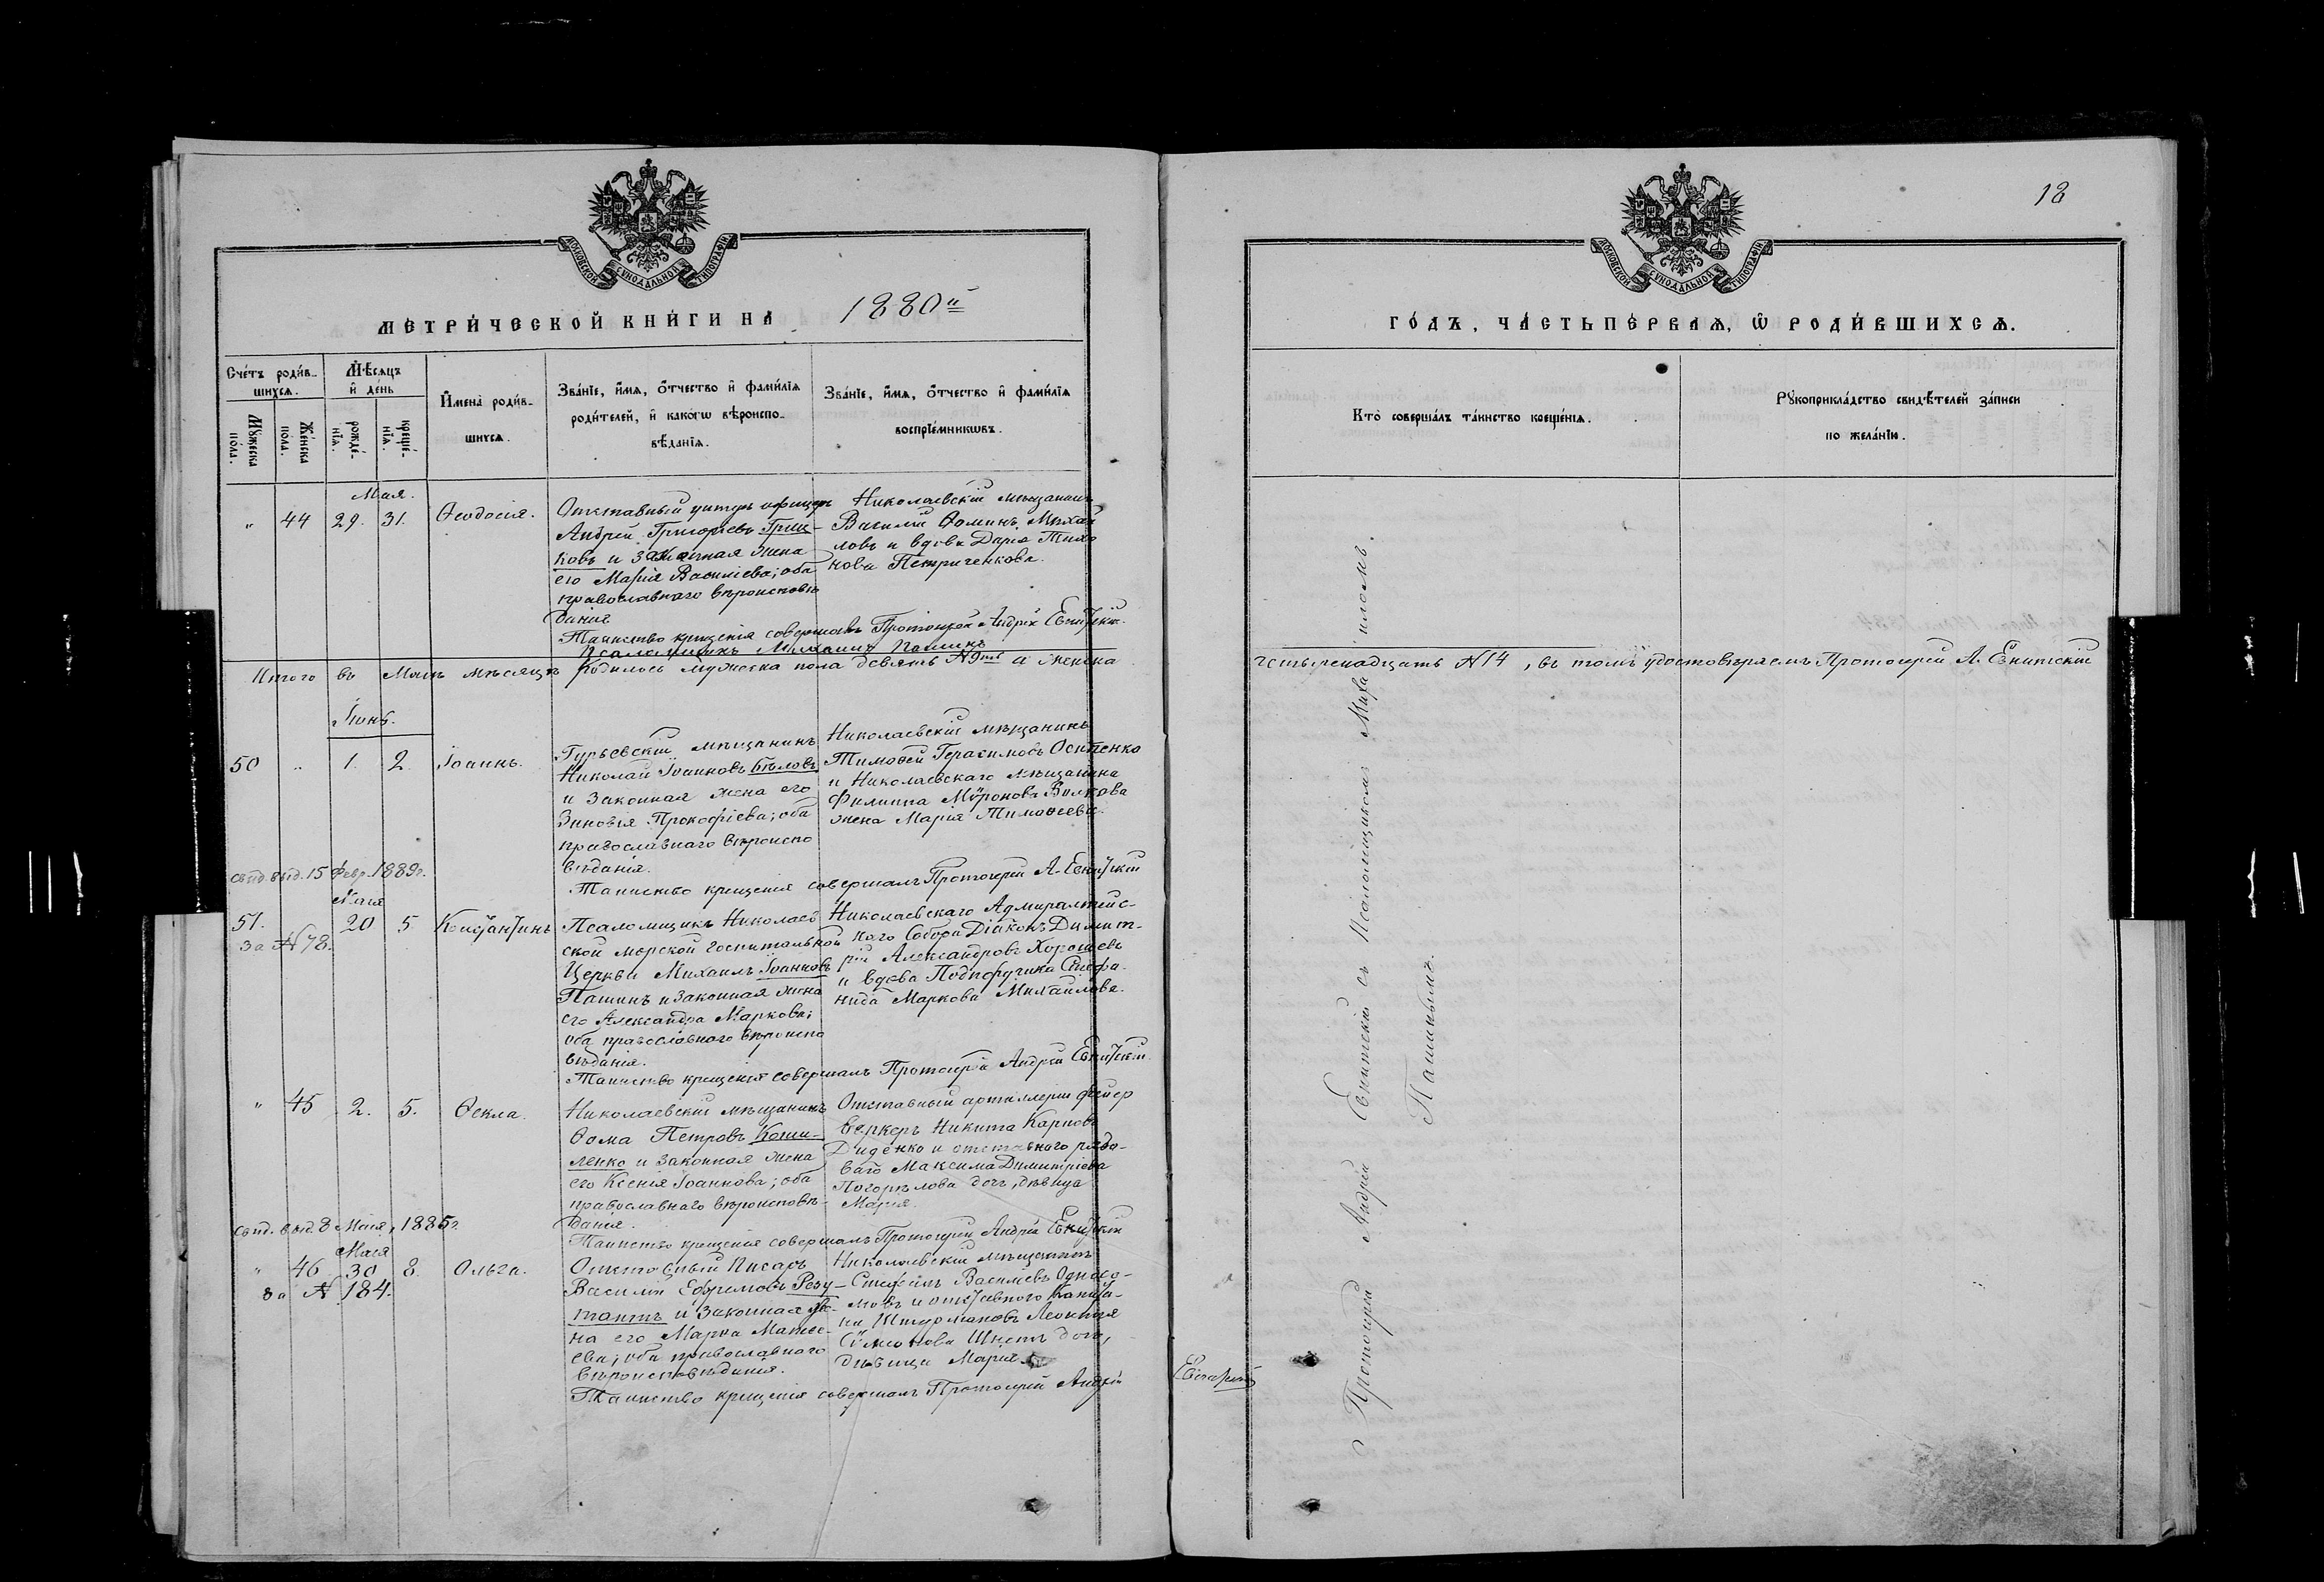 МОСКОВСКОЙ СУНОДАЛЬНОЙ ТИПОГРАФІИ
МЕТРИЧЕСКОЙ КНИГИ НА 1880й
Счетъ родив-
шихся.
Мѣсяцъ
и день
Имена родив-
шихся.
Званіе, имя, отчество и фамилія
родителей, и какогѡ вѣроиспо-
вѣданія.
Званіе, имя, отчество и фамилія
воспріемниковъ.
Мужеска
пола.
Женска
пола.
рожде-
нія.
креще-
нія.
Мая.
" 44 29. 31. Ѳеодосія.
Отставный унтеръ офицеръ
Андрей Григорьевъ Гриш-
ковъ и законная жена
его Марія Василіева; оба
православнаго вѣроисповѣ
данія
Николаевскій мѣщанинъ
Василій Ѳоминъ Михай
ловъ и вдова Дарія Тихо
нова Петриченкова.
Таинство крещенія совершалъ Протоіерей Андрей Евнитскій.
Псаломщикъ Михаилъ Пашинъ
Итого въ Маѣ мѣсяцѣ родилось мужеска пола девять №9ть и женска
Іюнь.
50 .. 1. 2. Іоаннъ.
Гурьевскій мѣщанинъ
Николай Іоанновъ Бѣловъ
и законная жена его
Зиновія Прокофіева; оба
православнаго вѣроиспо
вѣданія.
Николаевскій мѣщанинъ
Тимоѳей Герасимовъ Осипенко
и Николаевскаго мѣщанина
Филиппа Мѵронова Волкова
жена Марія Тимоѳеева.
Таинство крещенія совершалъ Протоіерей А. Евнитскій
свид. выд. 15 Февр. 1889г.
Мая
51. 20 5 Константинъ
за №78.
Псаломщикъ Николаев
ской морской госпитальной
Церкви Михаилъ Іоанновъ
Пашинъ и законная жена
его Александра Маркова;
оба православнаго вѣроиспо
вѣданія.
Николаевскаго Адмиралтейс-
каго Собора Діаконъ Димит-
рій Александровъ Хорошевъ
и вдова Подпоручика Стефа-
нида Маркова Михайлова.
Таинство крещенія совершалъ Протоіерей Андрей Евнитскій.
" 45 2. 5. Ѳекла.
Николаевскій мѣщанинъ
Ѳома Петровъ Коши-
ленко и законная жена
его Ксенія Іоаннова; оба
православнаго вѣроисповѣ-
данія.
Отставный артиллеріи фейер
веркеръ Никита Карповъ
Диденко и отставнаго рядо-
ваго Максима Димитріева
Погорѣлова дочь, дѣвица
Марія.
Таинство крещенія совершалъ Протоіерей Андрей Евнитскій
свид. выд. 8 Мая, 1885г.
Мая
" 46 30 8. Ольга.
за № 184.
Отставный Писарь
Василій Ефремовъ Резу-
тантъ и законная же-
на его Марѳа Матѳе-
ева; оба православнаго
вѣроисповѣданія.
Николаевскій мѣщанинъ
Стефанъ Василіевъ Одного-
мовъ и отставного Капита-
на Штурмановъ Леонтія
Сѵмонова дочь,
дѣвица Марія.
Таинство крещенія совершалъ Протоіерей Андрей
Евнитскій
18
МОСКОВСКОЙ СУНОДАЛЬНОЙ ТИПОГРАФІИ
ГОДЪ, ЧАСТЬ ПЕРВАЯ, Ѡ РОДИВШИХСЯ.
Кто совершалъ таинство крещенія.
Рукоприкладство свидѣтелей записи
по желанію.
четырнадцать №14, въ томъ удостовѣряемъ Протоіерей А. Евнитскій
Протоіерей Андрей Евнитскій съ Псаломщикомъ Михаиломъ
Пашинымъ.